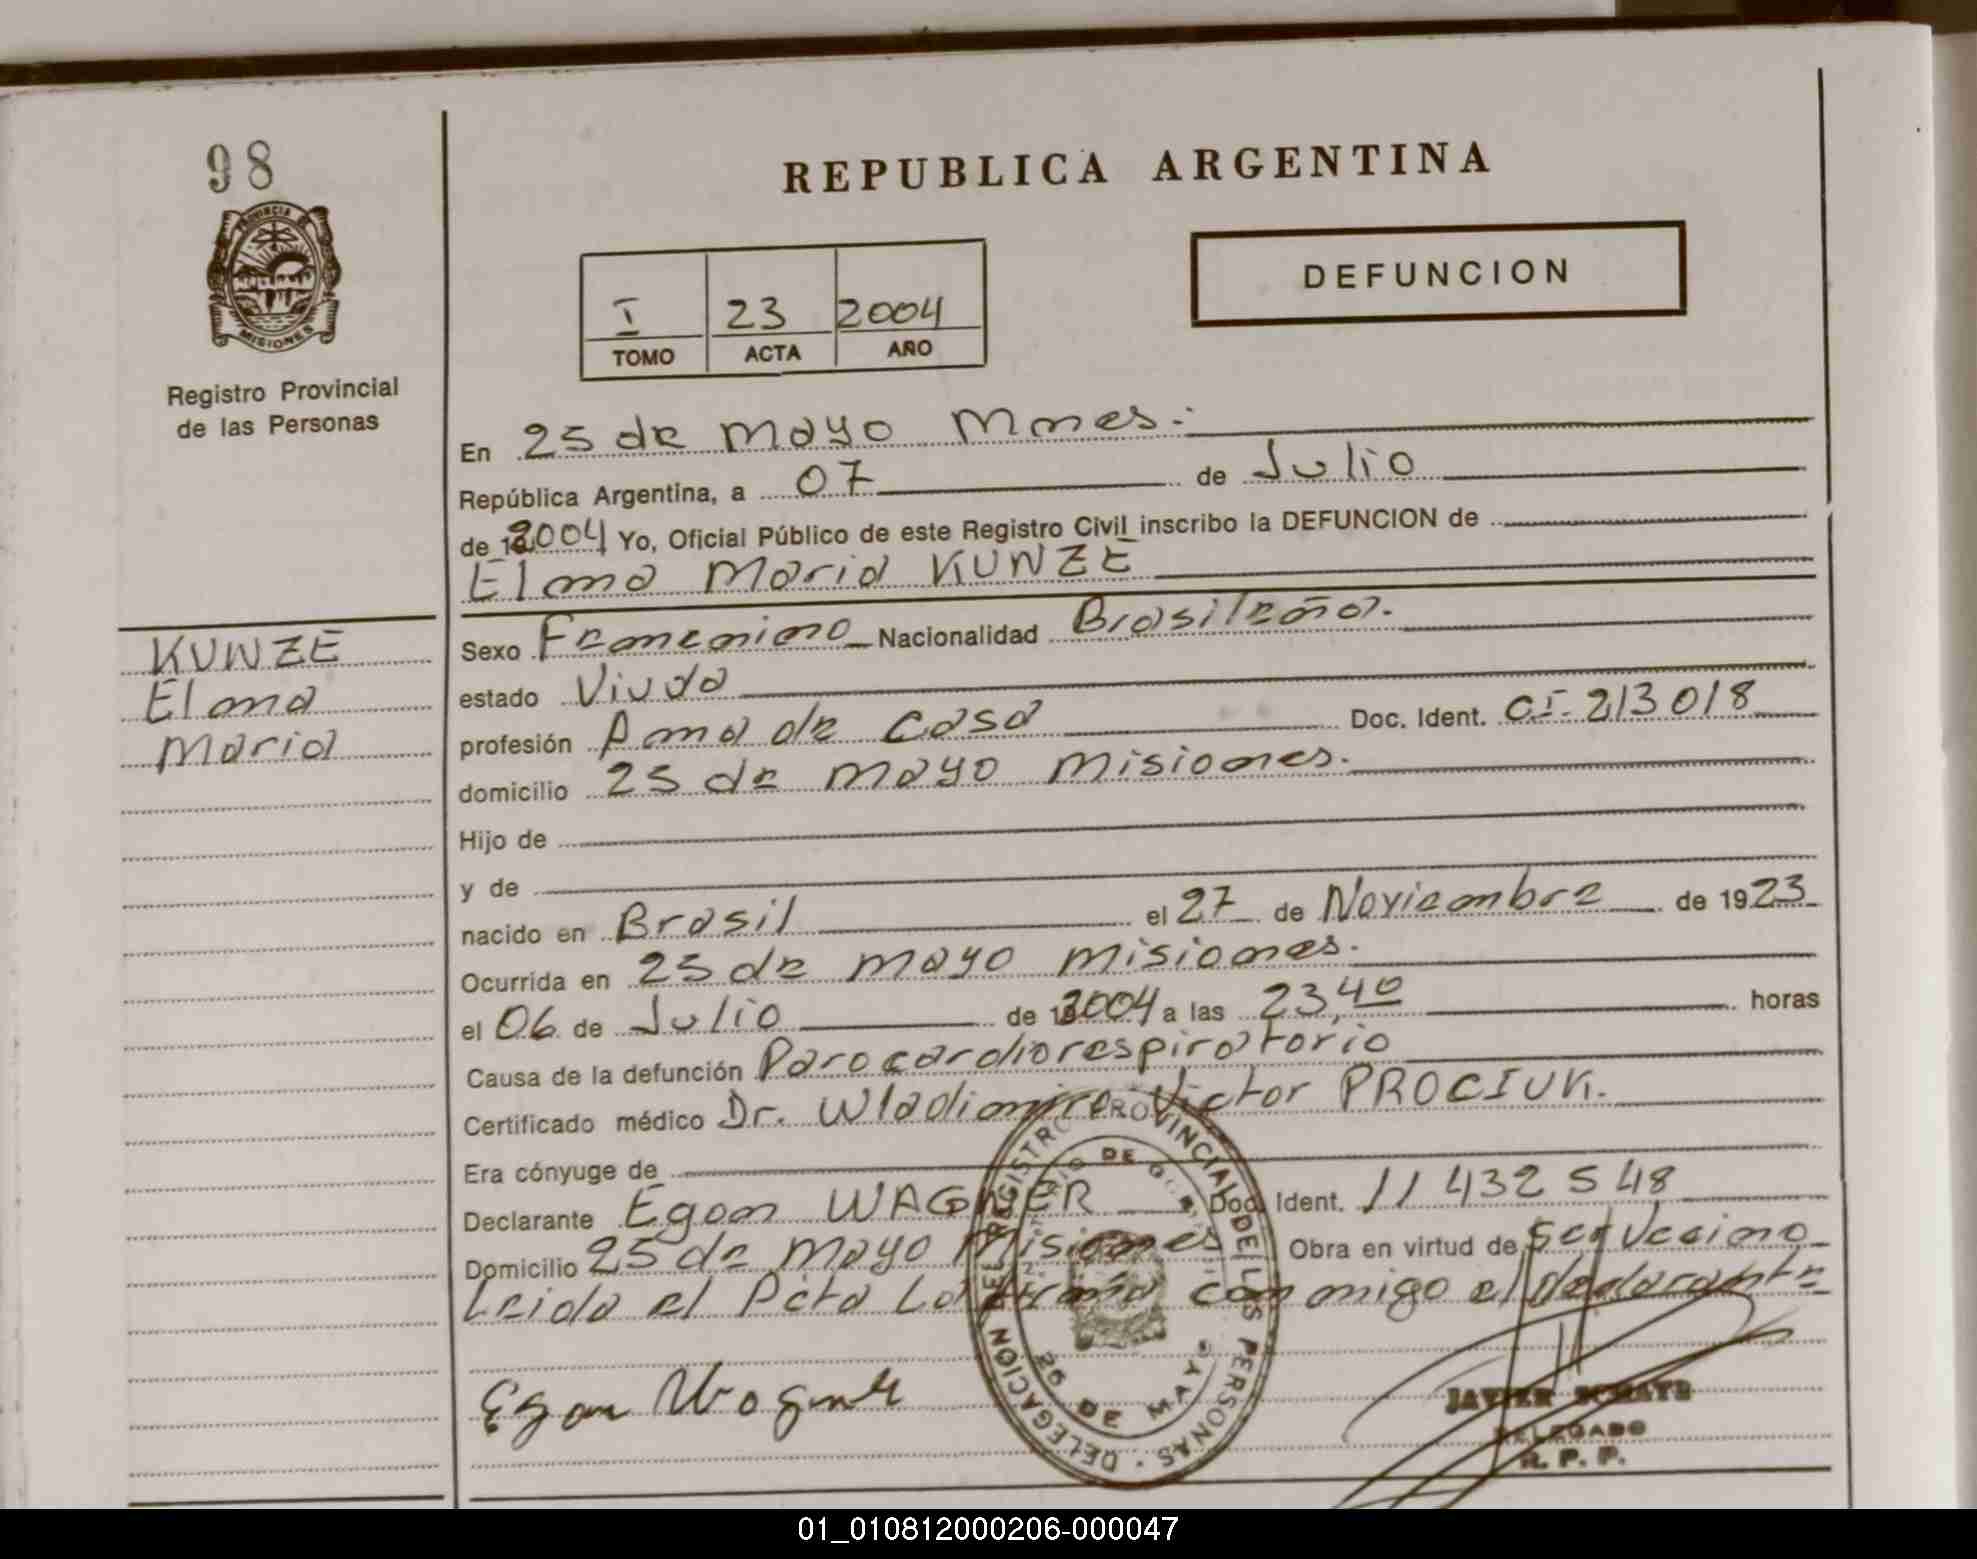 98
PROVINCIA DE
MISIONES
Registro Provincial
de las Personas
KUNZE
Elma
Maria
REPUBLICA ARGENTINA
I 23 2004
TOMO ACTA AÑO
DEFUNCION
En 25 de mayo Mnes.
República Argentina, a 07 de Julio
de 2004 Yo, Oficial Público de este Registro Civil inscribo la DEFUNCION de
Elma Maria KUNZE
Sexo Femenino Nacionalidad Brasileña.
estado Viuda
profesión Ama de Casa Doc. Ident. CI- 213018
domicilio 25 de mayo misiones.
Hijo de
y de
nacido en Brasil el 27 de Noviembre de 1923
Ocurrida en 25 de mayo misiones.
el 06 de Julio de 2004 a las 23,40 horas
Causa de la defunción Parocardiorespiratorio
Certificado médico Dr. Wladimiro Victor PROCIUK.
Era cónyuge de
Declarante Egon WAGNER Doc. Ident. 11 432 548
Domicilio 25 de mayo misiones Obra en virtud de ser Vecino
Leida el Acta La firma conmigo el declarante
Egon Wagner
REGISTRO PROVINCIAL DE LAS PERSONAS · DELEGACION DEL
DE
DE MAYO
JAVIER
DELEGADO
R. P. P.
01_010812000206-000047